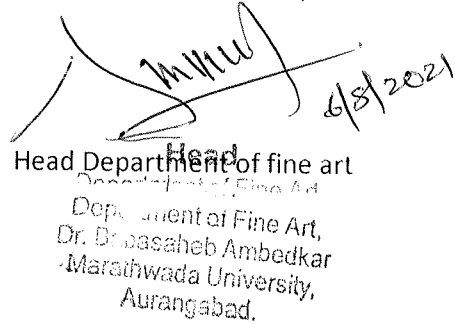 6/8/2021
Head
Head Department of fine art
Department of Fine Art,
Dr. Babasaheb Ambedkar
Marathwada University,
Aurangabad.